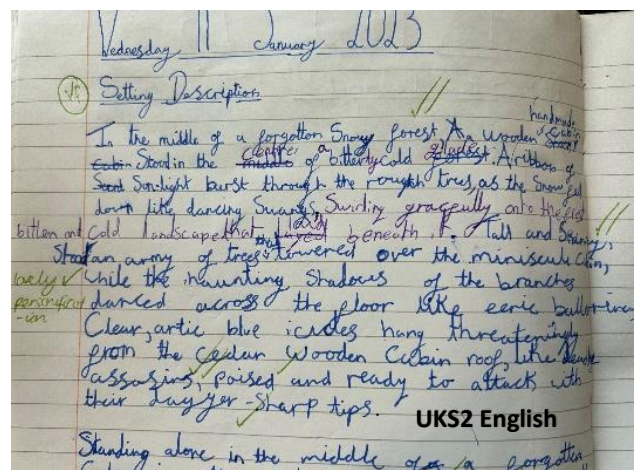 Wednesday 11 January 2023
Setting Description
handmade
In the middle of a forgotton Snowy forest, a wooden Cabin
Cabin Stood in the middle centre of a bitterly cold glade. A ribbon of
Sunlight burst through the rough trees, as the Snow fell
down like dancing Swans, Swirling gracefully onto the
bitten and Cold landscape that layed beneath it. Tall and Skinny,
Stood an army of trees that towered over the miniscule Cabin,
lovely personification
while the haunting Shadows of the branches
danced across the floor like eerie
Clear, artic blue icicles hang threateningly
from the Cedar Wooden Cabin roof, like deadly
assasins, poised and ready to attack with
their dagger-Sharp tips.
UKS2 English
Standing alone in the middle of a forgotten